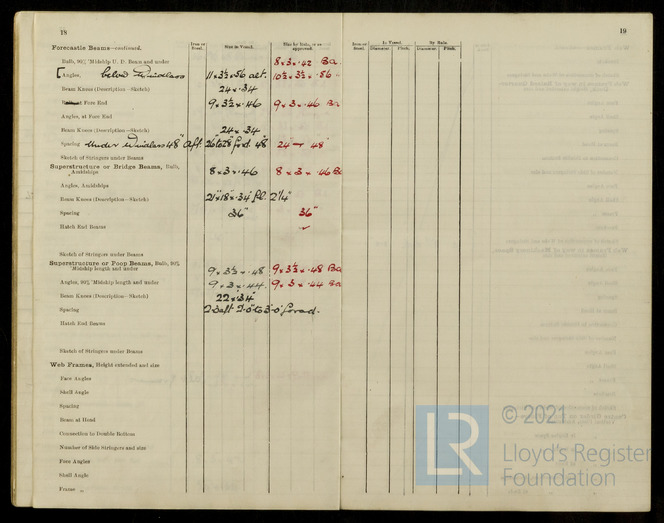 18
19
Forecastle Beams—continued.
Iron or Steel. Size in Vessel. Size by Rule, or as approved.
Iron or Steel. In Vessel. Diameter. Pitch. By Rule. Diameter. Pitch.
Bulb, 90% 'Midship U. D. Beam and under 8 x 3 x .42 Ba
[Angles, below Windlass 11 x 3½ x .56 alt. 10½ x 3½ x .56 "
Beam Knees (Description—Sketch) 24 x .34
at Fore End 9 x 3½ x .46 9 x 3 x .46 Ba
Angles, at Fore End
Beam Knees (Description—Sketch) 24 x .34
Spacing under Windlass 48" Aft. 26" to 28" ford. 48 24" — 48"
Sketch of Stringers under Beams
Superstructure or Bridge Beams, Bulb, Amidships 8 x 3 x .46 8 x 3 x .46 Ba
Angles, Amidships
Beam Knees (Description—Sketch) 21" x 18" x .34 fl. 2¼"
Spacing 36" 36"
Hatch End Beams
Sketch of Stringers under Beams
Superstructure or Poop Beams, Bulb, 90% 'Midship length and under 9 x 3½ x .48 9 x 3½ x .48 Ba
Angles, 90% 'Midship length and under 9 x 3 x .44 9 x 3 x .44 Ba
Beam Knees (Description—Sketch) 22 x .34"
Spacing 2'-0" to 3'-0" forad.
Hatch End Beams
Sketch of Stringers under Beams
Web Frames, Height extended and size
Face Angles
Shell Angle
Spacing
Beam at Head
Connection to Double Bottom
Number of Side Stringers and size
Face Angles
Shell Angle
Frame "
LR
© 2021
Lloyd's Register
Foundation